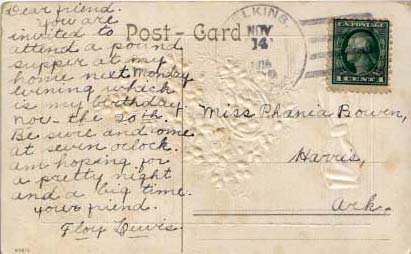 Dear friend.
You are
invited to
attend a pound
supper at my
home next Monday
evening which
is my birthday
Nov. the 20th.
Be sure and come
at seven oclock.
am hoping for
a pretty night
and a big time.
your friend.
Floy Lewis.
Post-Card
ELKINS
NOV
14
U.S. POSTAGE
1 CENT 1
Miss Phania Bowen,
Harris,
Ark.